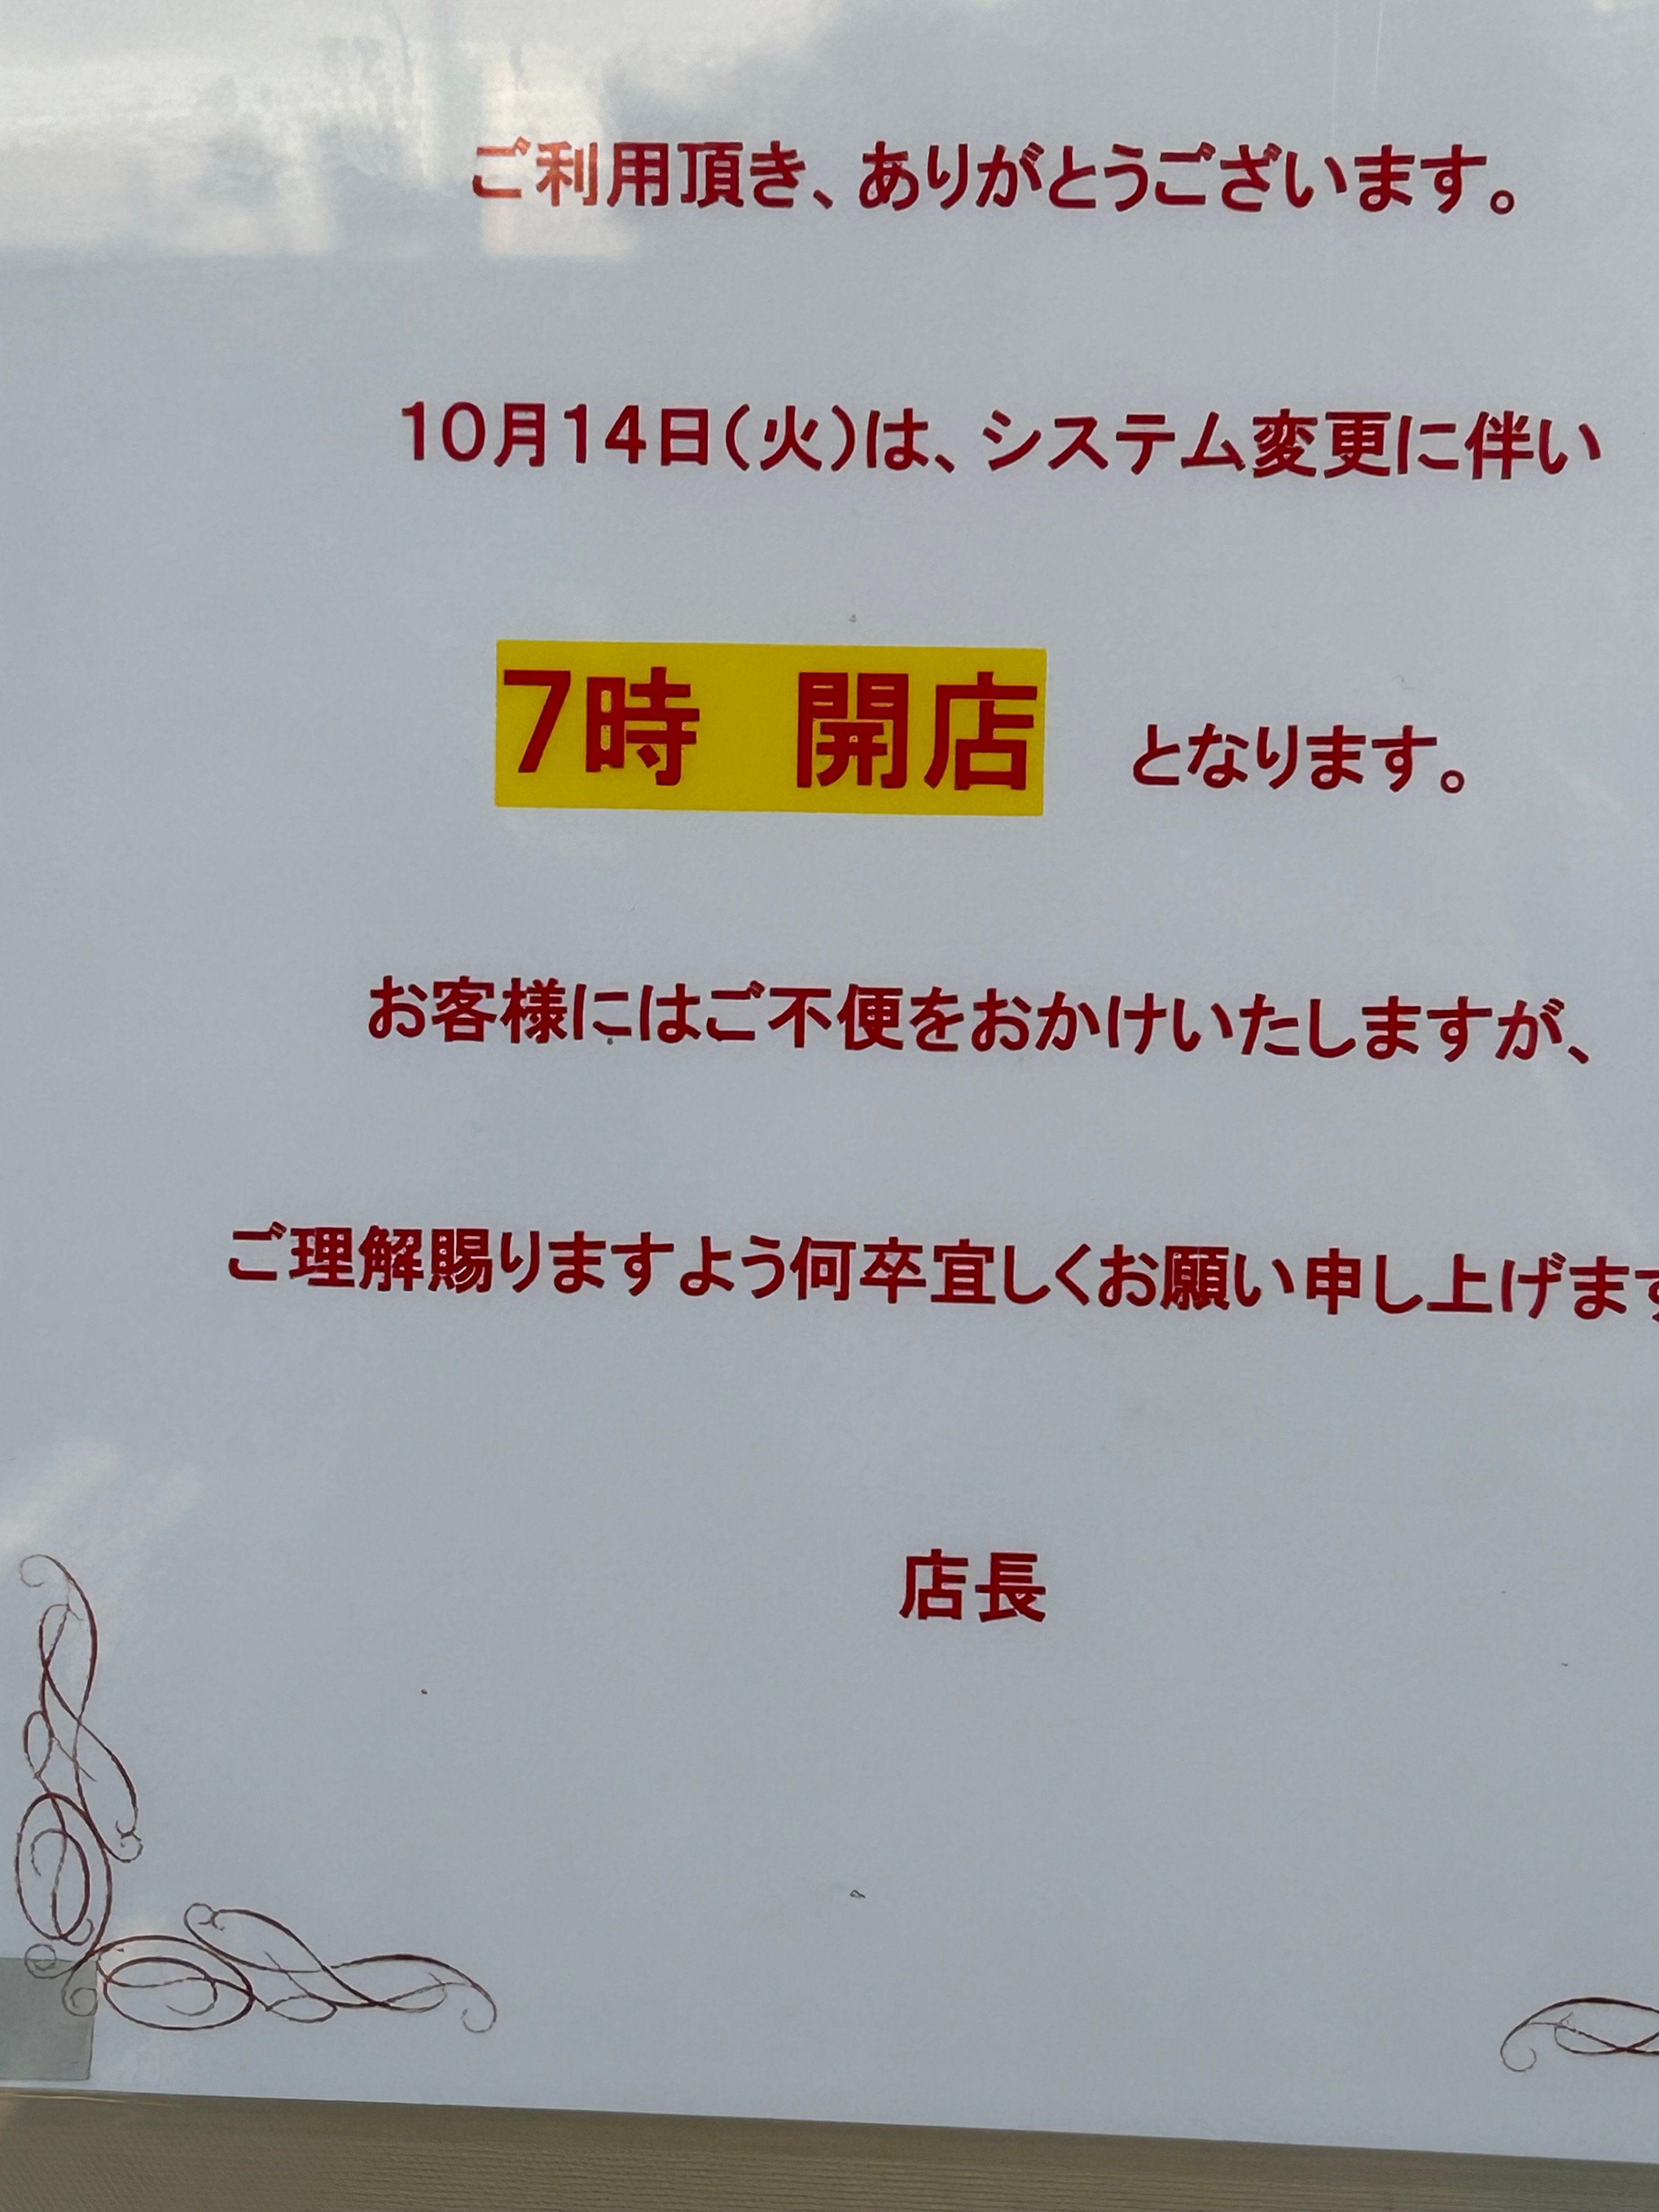 ご利用頂き、ありがとうございます。
10月14日(火)は、システム変更に伴い
7時　開店　となります。
お客様にはご不便をおかけいたしますが、
ご理解賜りますよう何卒宜しくお願い申し上げます
店長